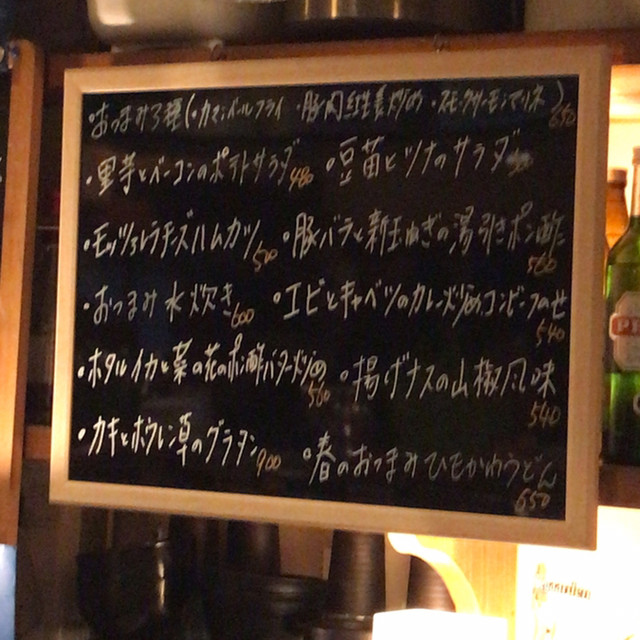 ・おつまみ3種(・カマンベールフライ ・豚肉紅生姜炒め ・スモークサーモンマリネ) 650
・里芋とベーコンのポテトサラダ 480 ・豆苗とツナのサラダ
・モッツァレラチーズハムカツ 500 ・豚バラと新玉ねぎの湯引きポン酢 560
・おつまみ水炊き 600 ・エビとキャベツのカレー炒めコンビーフのせ 540
・ホタルイカと菜の花のポン酢バター炒め 560 ・揚げナスの山椒風味 540
・カキとホウレン草のグラタン 900 ・春のおつまみひもかわうどん 650